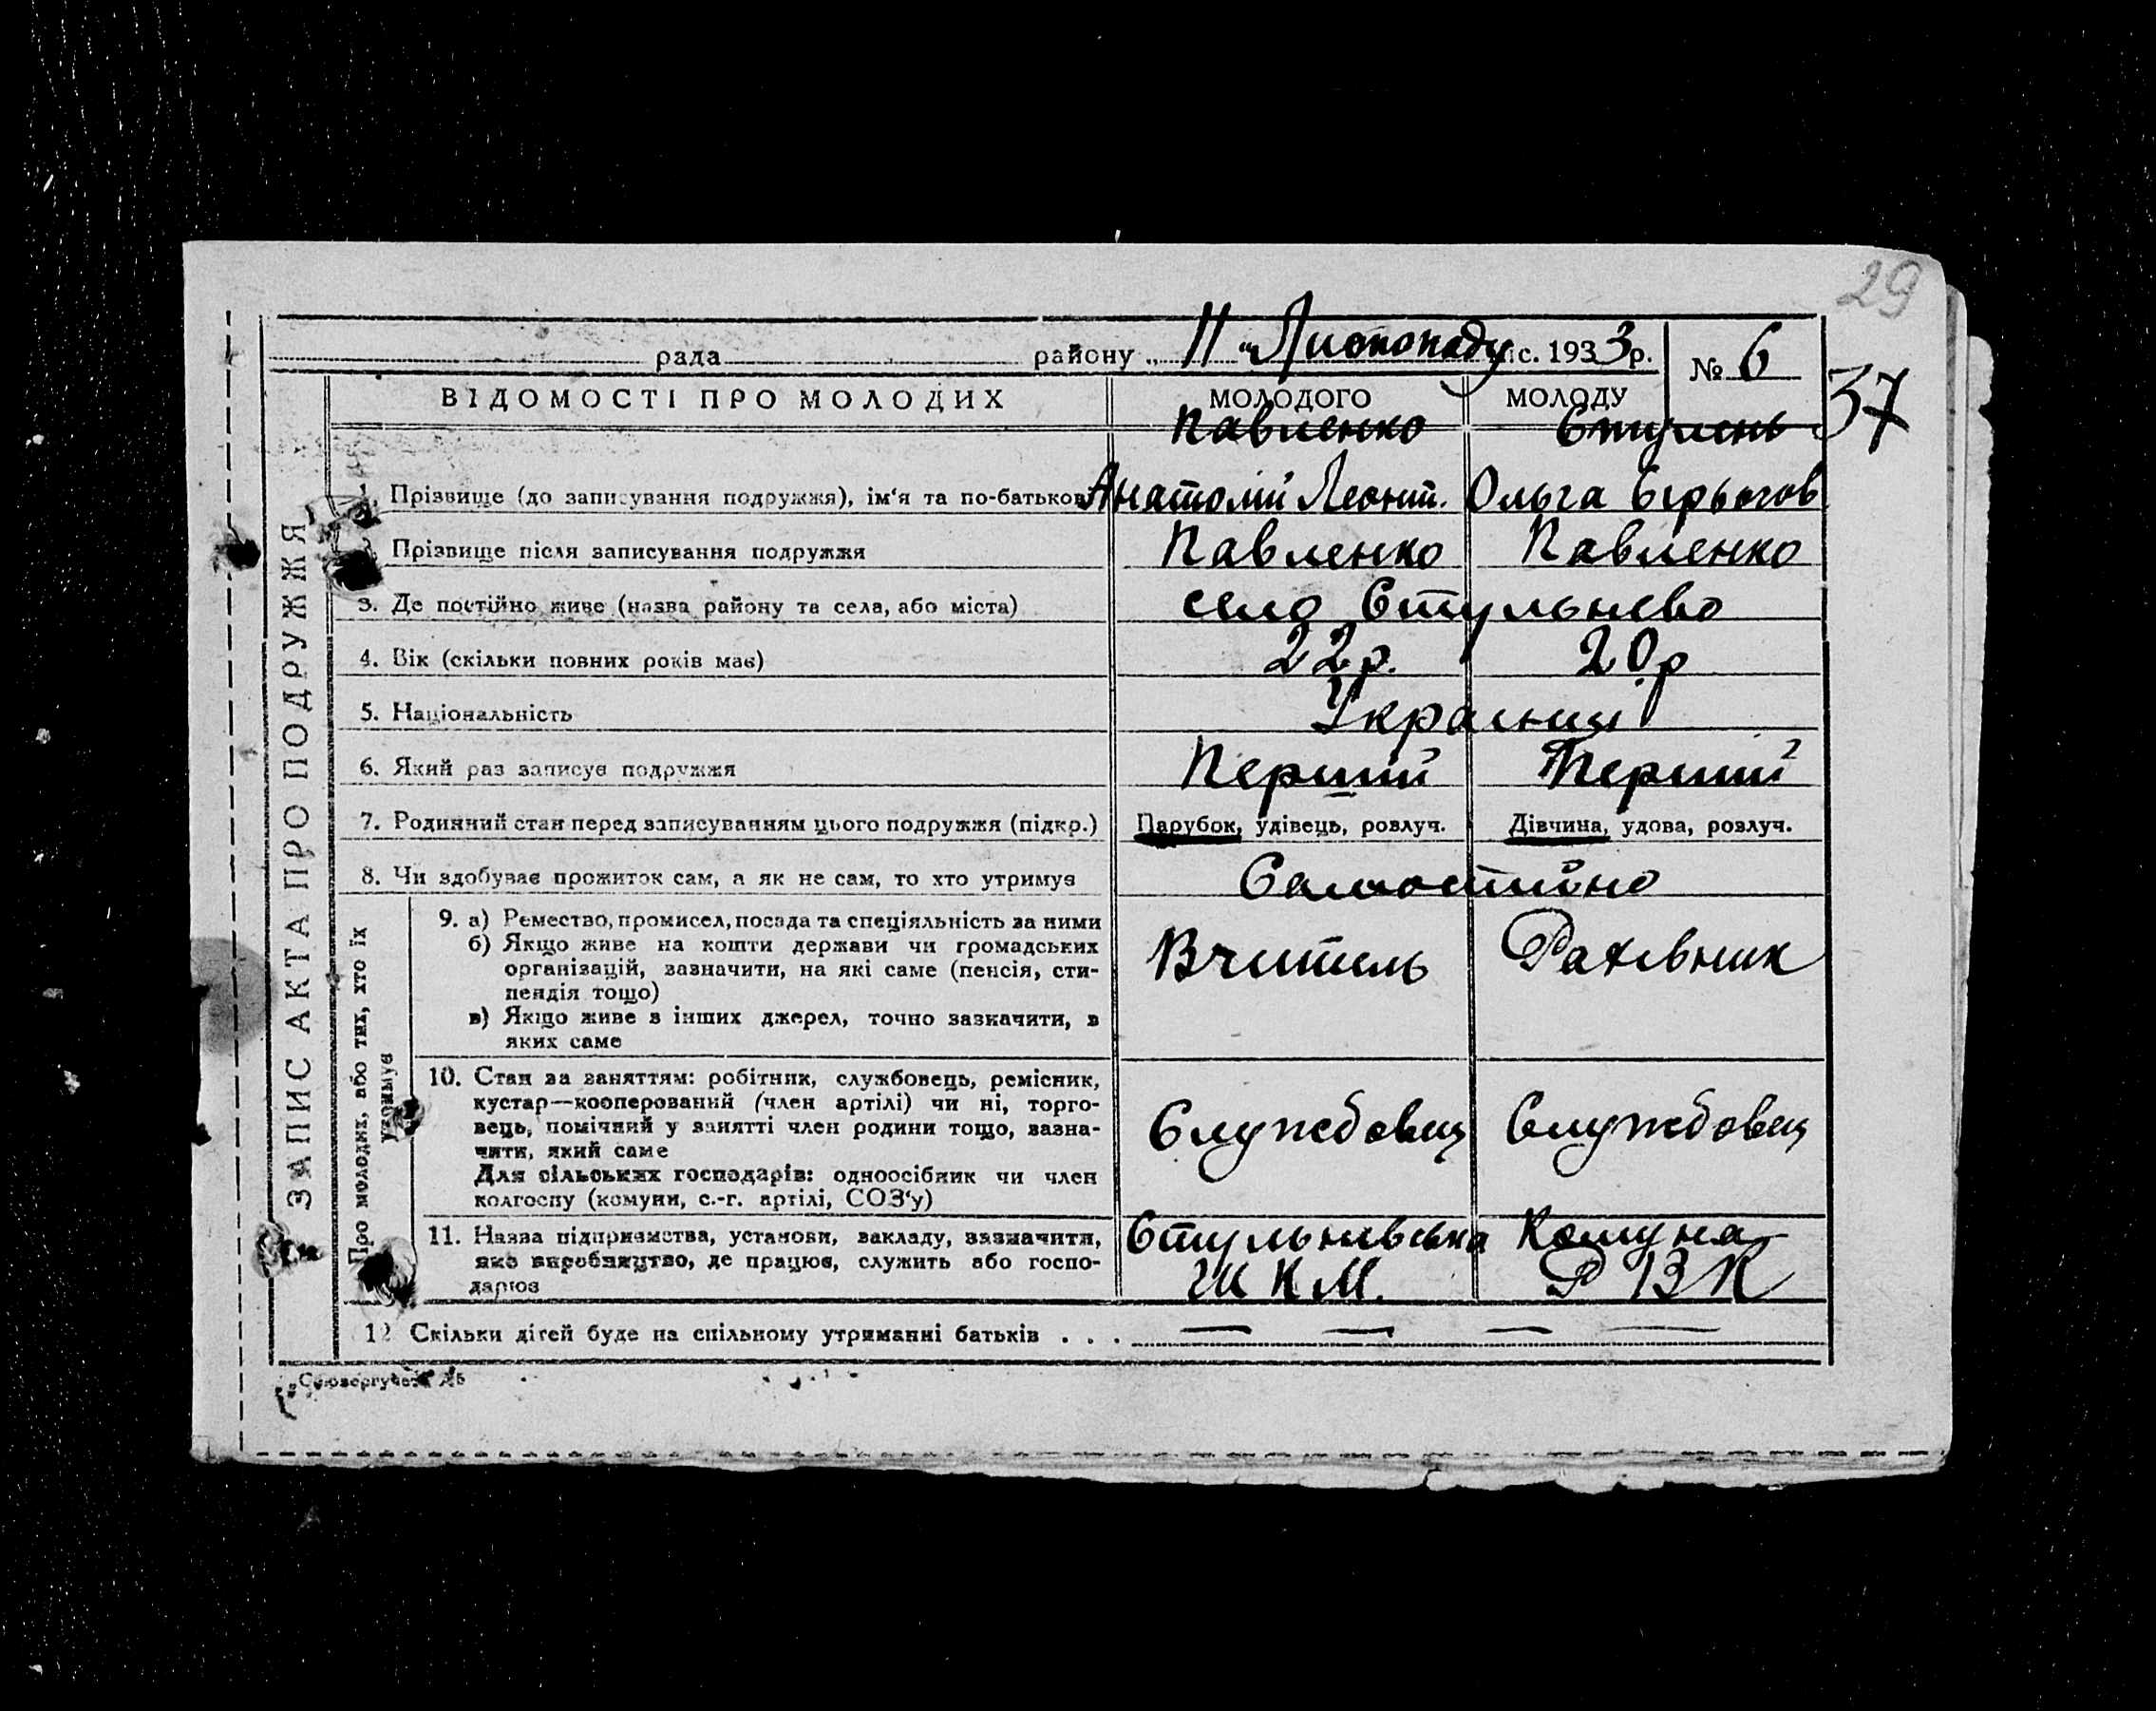 29
рада району „ 11 “ Листопаду міс. 1933 р. № 6
37
ВІДОМОСТІ ПРО МОЛОДИХ МОЛОДОГО МОЛОДУ
Павленко Стулень
1. Прізвище (до записування подружжя), ім'я та по-батькові Анатолій Леонт. Ольга
Прізвище після записування подружжя Павленко Павленко
3. Де постійно живе (назва району та села, або міста) село Стульнево
4. Вік (скільки повних років має) 22 р. 20 р
5. Національність Українці
6. Який раз записує подружжя Перший Перший
7. Родинний стан перед записуванням цього подружжя (підкр.) Парубок, удівець, розлуч. Дівчина, удова, розлуч.
8. Чи здобуває прожиток сам, а як не сам, то хто утримує Самостийно
9. а) Ремество, промисел, посада та спеціяльність за ними
б) Якщо живе на кошти держави чи громадських
організацій, зазначити, на які саме (пенсія, сти-
пендія тощо)
Вчитель Рахівник
в) Якщо живе з інших джерел, точно зазначити, з
яких саме
10. Стан за заняттям: робітник, службовець, ремісник,
кустар—кооперований (член артілі) чи ні, торго-
вець, помічний у занятті член родини тощо, зазна-
чити, який саме
Службовец Службовец
Для сільських господарів: одноосібник чи член
колгоспу (комуни, с.-г. артілі, СОЗ'у)
11. Назва підприємства, установи, закладу, зазначити, Стульневська Комуна
яке виробництво, де працює, служить або госпо- ШКМ. РВК
дарює
12 Скільки дітей буде на спільному утриманні батьків . . . — — — —
ЗАПИС АКТА ПРО ПОДРУЖЖЯ
Про молодих, або тих, хто їх
утримує